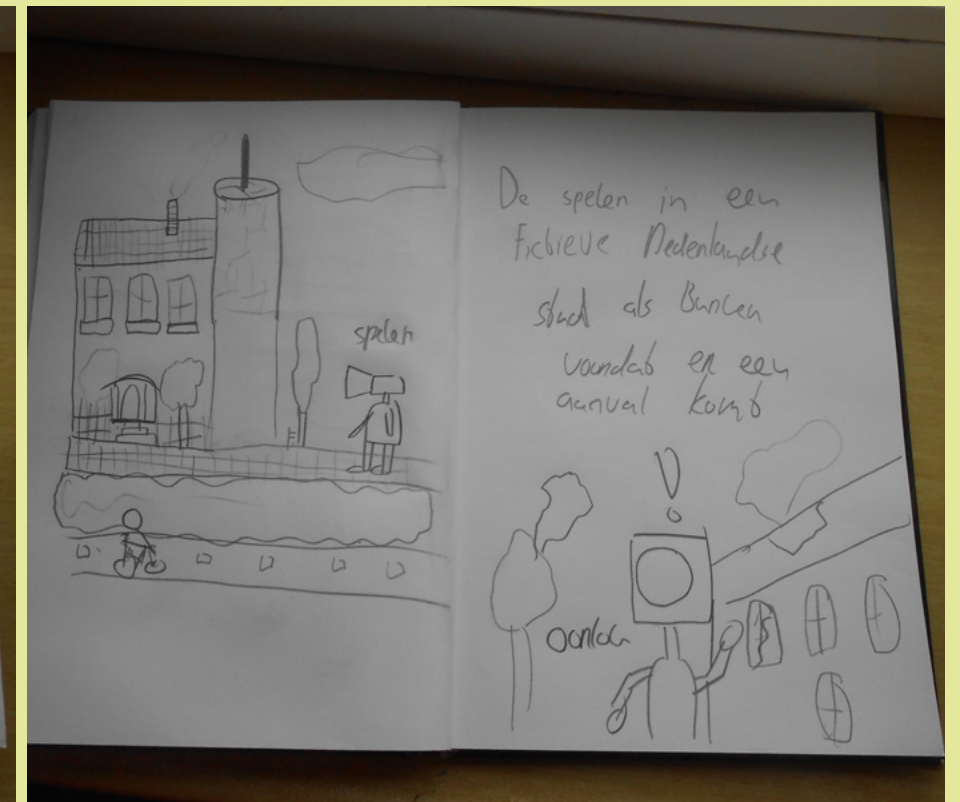 spelen
De spelen in een
Fictieve Nederlandse
stad als Buncen
voordat er een
aanval komt
oorlog